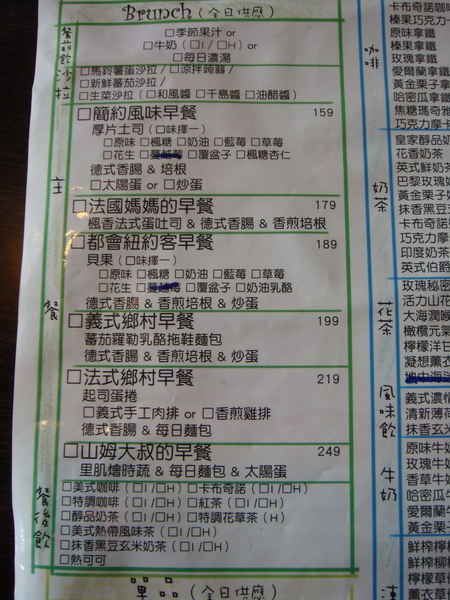 Brunch (全日供應)
餐前飲
□季節果汁 or
□牛奶 (□I /□H) or
□每日濃湯
沙拉
□馬鈴薯蛋沙拉 / □涼拌蒟蒻 /
□新鮮蕃茄沙拉 /
□生菜沙拉 (□和風醬 □千島醬 □油醋醬)
主餐
□簡約風味早餐 159
厚片土司 (□味擇一)
□原味 □楓糖 □奶油 □藍莓 □草莓
□花生 □覆盆子 □楓糖杏仁
德式香腸 & 培根
□太陽蛋 or □炒蛋
□法國媽媽的早餐 179
楓香法式蛋吐司 & 德式香腸 & 香煎培根
□都會紐約客早餐 189
貝果 (□味擇一)
□原味 □楓糖 □奶油 □藍莓 □草莓
□花生 □覆盆子 □奶油乳酪
德式香腸 & 香煎培根 & 炒蛋
□義式鄉村早餐 199
蕃茄羅勒乳酪拖鞋麵包
德式香腸 & 香煎培根 & 炒蛋
□法式鄉村早餐 219
起司蛋捲
□義式手工肉排 or □香煎雞排
德式香腸 & 每日麵包
□山姆大叔的早餐 249
里肌燴時蔬 & 每日麵包 & 太陽蛋
餐後飲
□美式咖啡 (□I /□H) □卡布奇諾 (□I /□H)
□特調咖啡 (□I /□H) □紅茶 (□I /□H)
□醇品奶茶 (□I /□H) □特調花草茶 (H)
□美式熱帶風味茶 (□I /□H)
□抹香黑豆玄米奶茶 (□I /□H)
□熱可可
單品 (全日供應)
咖啡
卡布奇諾
榛果巧克力
原味拿鐵
榛果拿鐵
玫瑰拿鐵
愛爾蘭拿鐵
黃金栗子拿
哈密瓜拿鐵
焦糖瑪奇雅
巧克力摩卡
奶茶
皇家醇品奶
花香奶茶
英式鮮奶茶
巴黎玫瑰奶
黃金栗子奶
抹香黑豆玄
卡布奇諾
巧克力摩
印度奶茶
英式伯爵
花茶
玫瑰秘密
活力山花
大海潤喉
橄欖元氣
檸檬洋甘
凝想薰衣
地中海
風味飲
義式濃情
清新薄荷
抹香玄米
牛奶
原味牛奶
玫瑰牛奶
香草牛奶
哈密瓜牛
愛爾蘭牛
黃金栗子
鮮榨檸檬
鮮榨柳橙
檸檬草
薰衣草